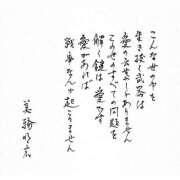 こんな世の中を
生き抜く武器は
愛の大きさしかありません
この世のすべての問題を
解く鍵は 愛です
愛があれば
戦争なんか起こりません
美輪明宏